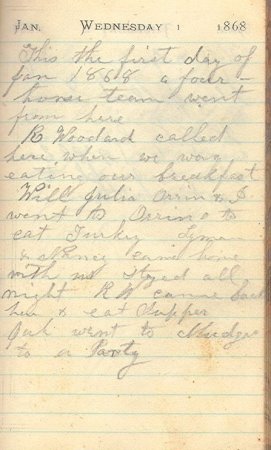 JAN. WEDNESDAY 1 1868
This the first day of
Jan 1868 a four -
horse team went
from here
R Woodard called
here when we was
eating our breakfast
Will Julia Orrin & I
went to Orrins to
eat Turky Lyman
& Nancy came home
with us stayed all
night R W came back
here & eat Supper
went to Mudge
to a Party